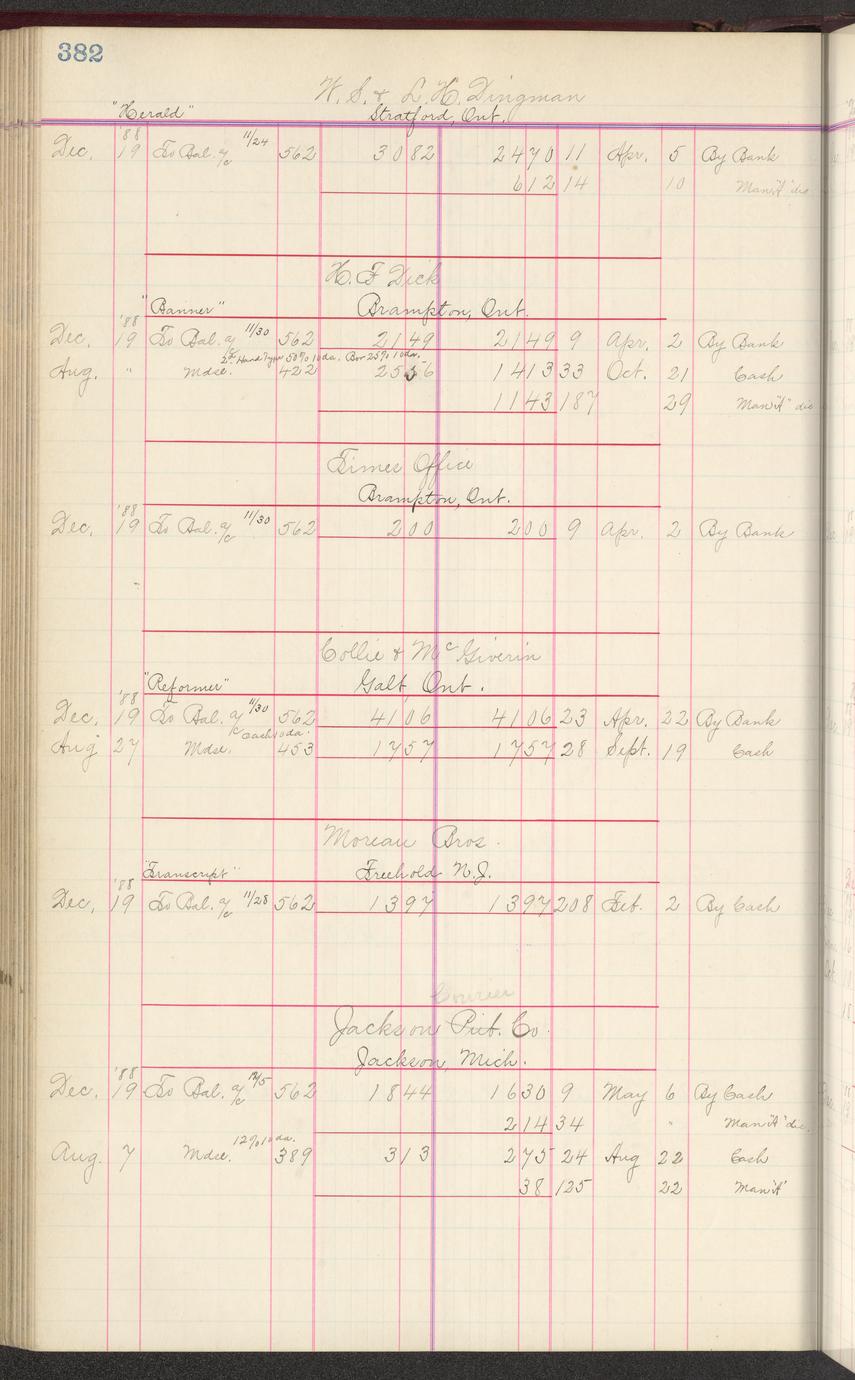 382
W. S. & L. H. Dingman
"Herald" Stratford, Ont.
'88
Dec. 19 To Bal. a/c 11/24 562 30 82 24 70 11 Apr. 5 By Bank
6 12 14 10 Man "A" dis
H. F. Dick
"Banner" Brampton, Ont.
'88
Dec. 19 To Bal. a/c 11/30 562 21 49 21 49 9 Apr. 2 By Bank
2d Hand Type 50% 10 da. Bor 25% 10 da.
Aug. " Mdse. 422 25 56 14 13 33 Oct. 21 Cash
11 43 187 29 Man "A" dis
Times Office
Brampton, Ont.
'88
Dec. 19 To Bal. a/c 11/30 562 2 00 2 00 9 Apr. 2 By Bank
Collie & McGiverin
"Reformer" Galt, Ont.
'88
Dec. 19 To Bal. a/c 11/30 562 41 06 41 06 23 Apr. 22 By Bank
Cash 10 da.
Aug 27 Mdse. 453 17 57 17 57 28 Sept. 19 Cash
Moreau Bros.
"Transcript" Freehold N.J.
'88
Dec. 19 To Bal. a/c 11/28 562 13 97 13 97 208 Feb. 2 By Cash
Courier
Jackson Pub. Co.
Jackson, Mich.
'88
Dec. 19 To Bal. a/c 12/5 562 18 44 16 30 9 May 6 By Cash
2 14 34 " Man "A" dis.
12% 10 da.
Aug. 7 Mdse. 389 3 13 2 75 24 Aug 22 Cash
38 125 22 Man "A"